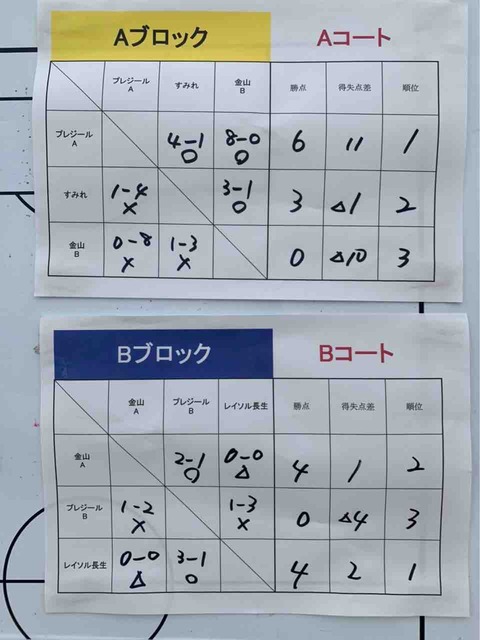 Aブロック Aコート
プレジールA すみれ 金山B 勝点 得失点差 順位
プレジールA 4-1 ○ 8-0 ○ 6 11 1
すみれ 1-4 × 3-1 ○ 3 △1 2
金山B 0-8 × 1-3 × 0 △10 3
Bブロック Bコート
金山A プレジールB レイソル長生 勝点 得失点差 順位
金山A 2-1 ○ 0-0 △ 4 1 2
プレジールB 1-2 × 1-3 × 0 △4 3
レイソル長生 0-0 △ 3-1 ○ 4 2 1